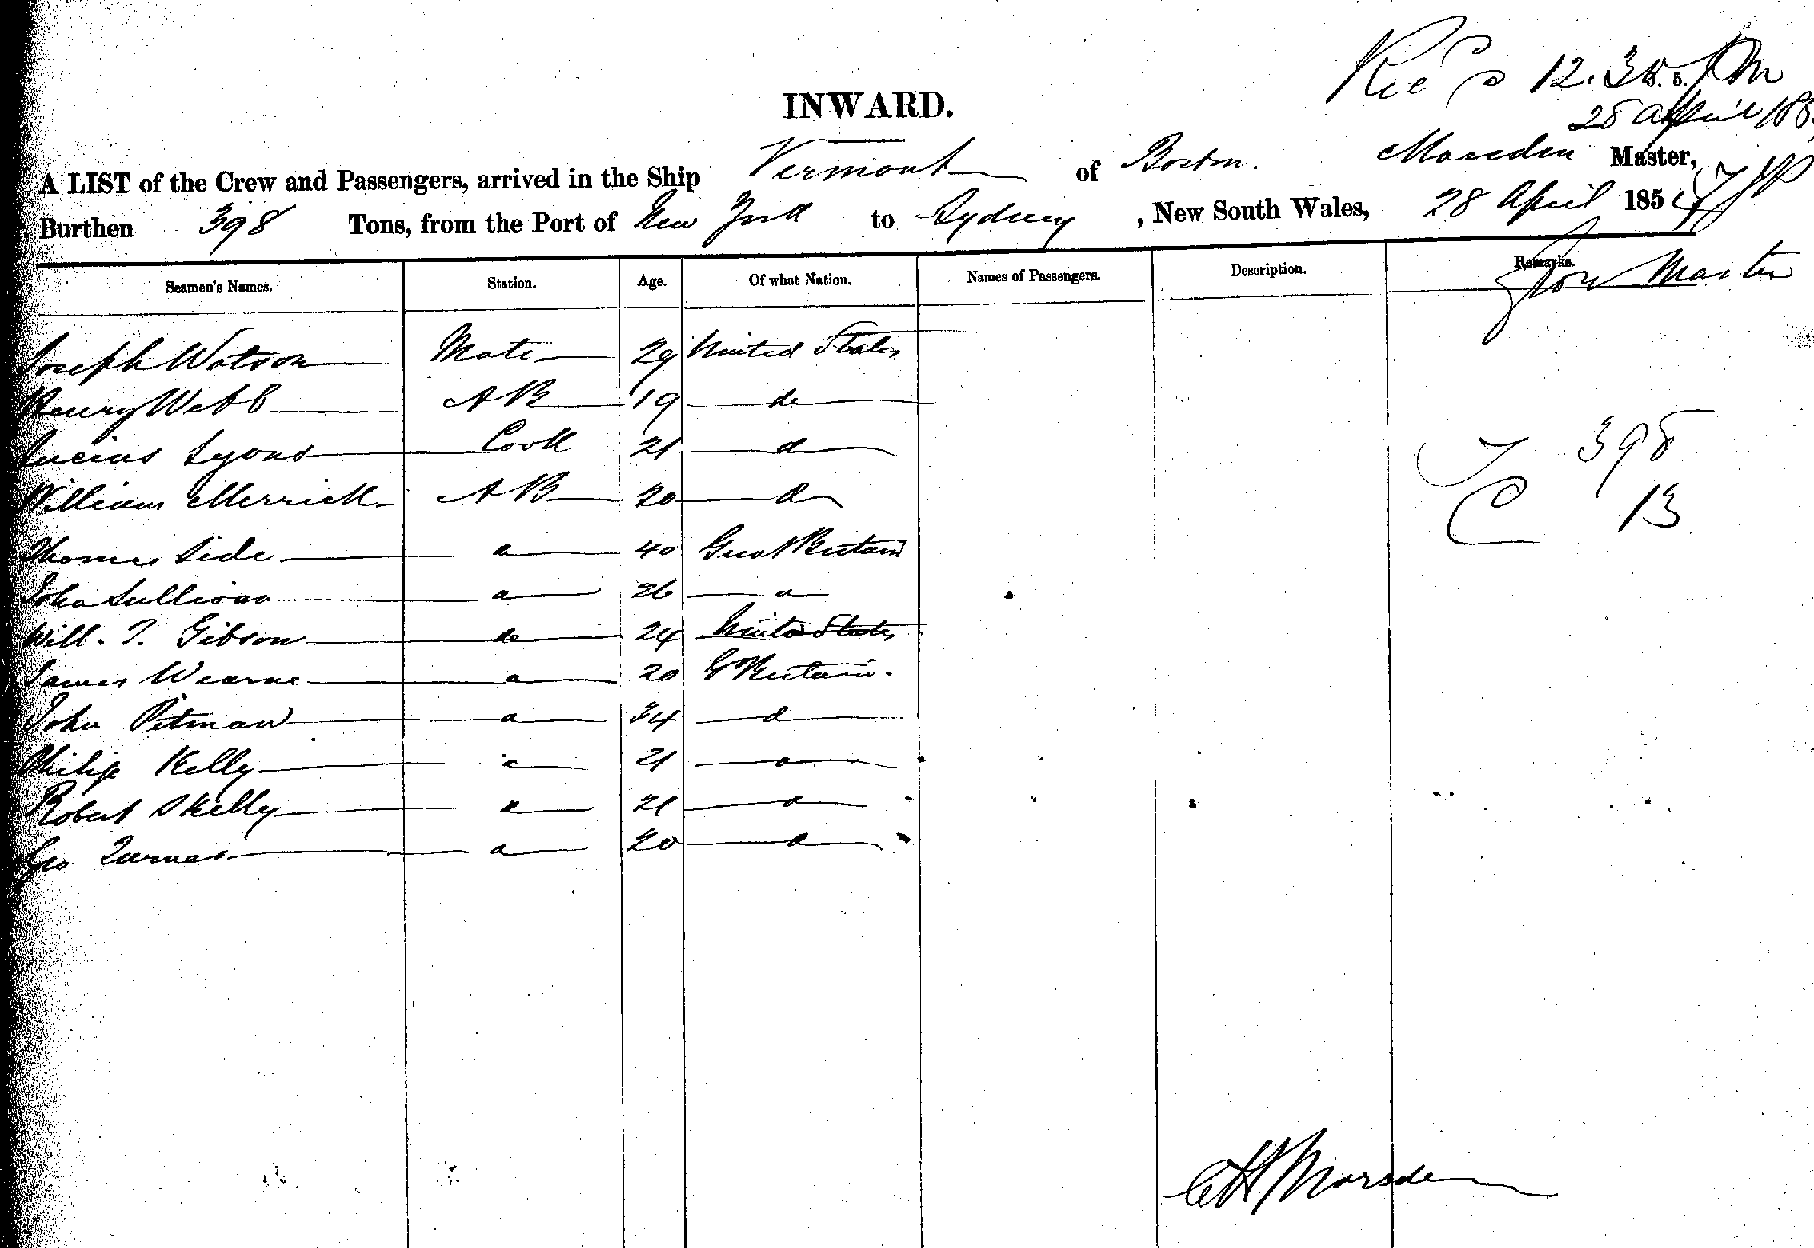 Rec'd 12.30. PM
28 April 185
INWARD.
A LIST of the Crew and Passengers, arrived in the Ship Vermont of Boston. Marsden Master,
Burthen 398 Tons, from the Port of New York to Sydney, New South Wales, 28 April 1854
For Master
Seamen's Names. Station. Age. Of what Nation. Names of Passengers. Description. Remarks.
Joseph Watson Mate 29 United States
Henry Webb AB 19 do
Lucius Lyons Cook 21 d
William Merrick AB 20 d
Thomas Side a 40 Great Britain
John Sullivan a 26 a
Will. T. Gibson do 24 United States
James Wearne a 20 G Britain.
John Pitman a 34 d
Philip Kelly a 21 a
Robert Skelly a 21 a
Geo Turner a 20 a
T 398
C 13
CH Marsden